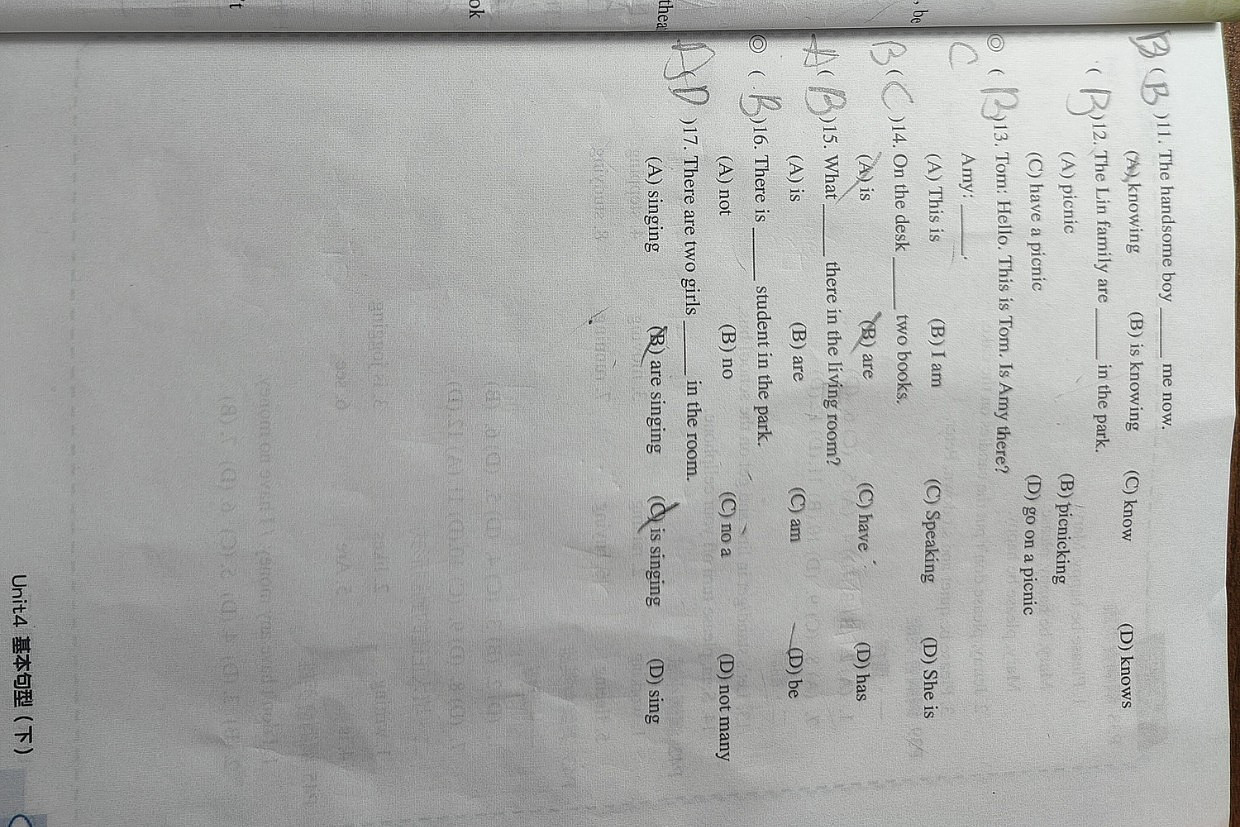 B (B)11. The handsome boy ______ me now.
(A) knowing (B) is knowing (C) know (D) knows
(B)12. The Lin family are ______ in the park.
(A) picnic (B) picnicking
(C) have a picnic (D) go on a picnic
◎ (B)13. Tom: Hello. This is Tom. Is Amy there?
C Amy: ______.
(A) This is (B) I am (C) Speaking (D) She is
B (C)14. On the desk ______ two books.
(A) is (B) are (C) have (D) has
A (B)15. What ______ there in the living room?
(A) is (B) are (C) am (D) be
◎ (B)16. There is ______ student in the park.
(A) not (B) no (C) no a (D) not many
A (D)17. There are two girls ______ in the room.
(A) singing (B) are singing (C) is singing (D) sing
Unit4 基本句型（下）
, be
thea
ok
't